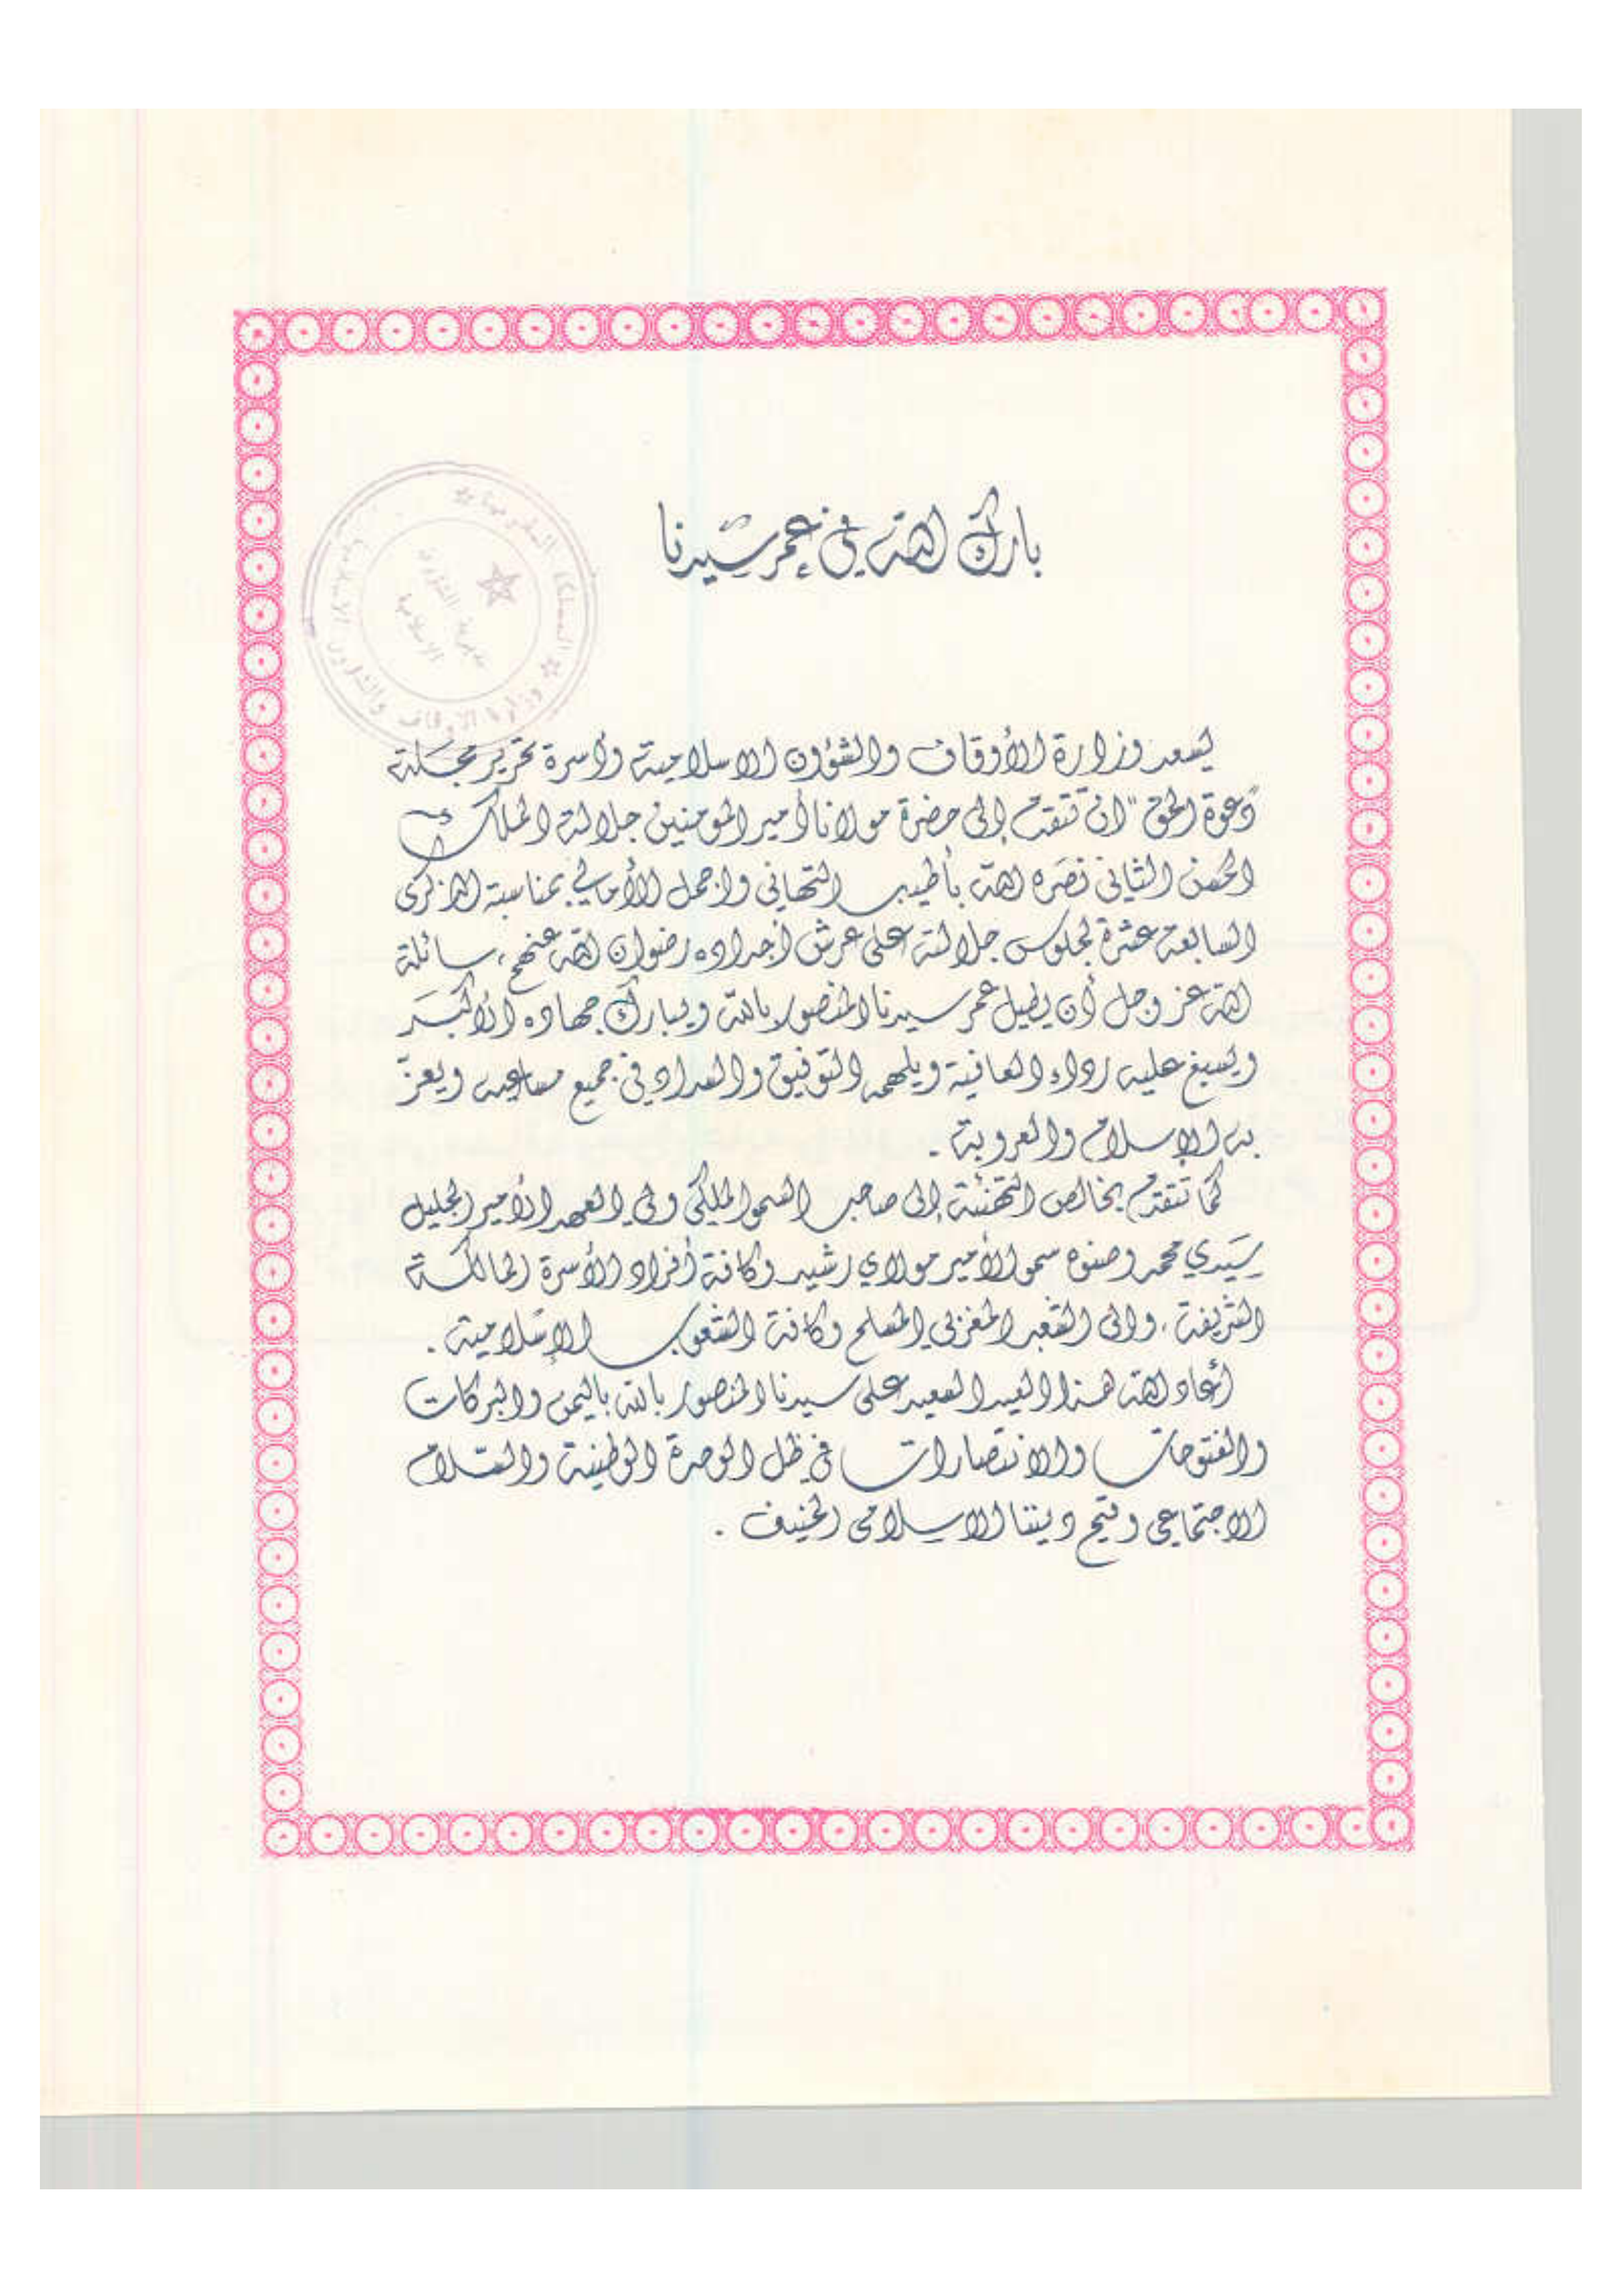 بارك الله في عمر سيدنا
المملكة المغربية
وزارة الاوقاف والشؤون الاسلامية
مديرية الشؤون
الاسلامية
يسعد وزارة الأوقاف والشؤون الاسلامية وأسرة تحرير مجلة
"دعوة الحق" ان تتقدم إلى حضرة مولانا أمير المؤمنين جلالة الملك
الحسن الثاني نصره الله بأطيب التهاني واجمل الأماني بمناسبة الذكرى
السابعة عشرة لجلوس جلالته على عرش أجداده رضوان الله عنهم، سائلة
الله عز وجل أن يطيل عمر سيدنا المنصور بالله ويبارك جهاده الأكبر
ويسبغ عليه رداء العافية ويلهمه التوفيق والسداد في جميع مساعيه ويعزّ
به الإسلام والعروبة .
كما تتقدم بخالص التهنئة إلى صاحب السمو الملكي ولي العهد الأمير الجليل
سيدي محمد وصنوه سمو الأمير مولاي رشيد وكافة أفراد الأسرة المالكة
الشريفة ، والى الشعب المغربي المسلم وكافة الشعوب الإسلامية .
أعاد الله هذا العيد السعيد على سيدنا المنصور بالله باليمن والبركات
والفتوحات والانتصارات في ظل الوحدة الوطنية والسلام
الاجتماعي وقيم ديننا الاسلامي الحنيف .